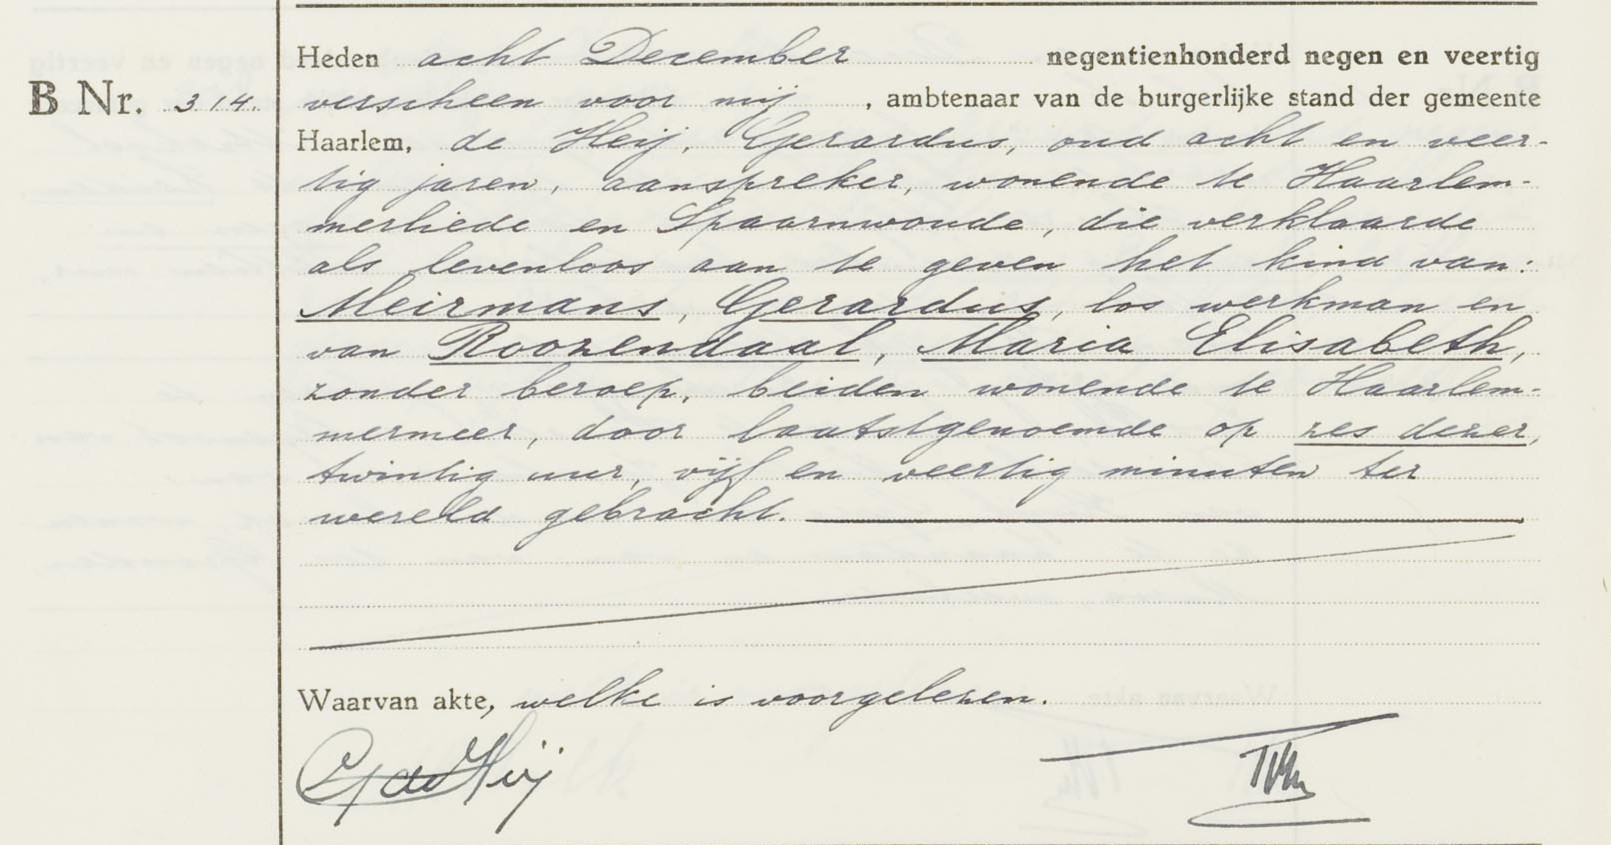 Heden acht December negentienhonderd negen en veertig
B Nr. 314. verscheen voor mij , ambtenaar van de burgerlijke stand der gemeente
Haarlem, de Heij, Gerardus, oud acht en veer-
tig jaren, aanspreker, wonende te Haarlem-
merliede en Spaarnwoude, die verklaarde
als levenloos aan te geven het kind van:
Meirmans, Gerardus, los werkman en
van Roozendaal, Maria Elisabeth,
zonder beroep, beiden wonende te Haarlem-
mermeer, door laatstgenoemde op zes dezer,
twintig uur, vijf en veertig minuten ter
wereld gebracht.
Waarvan akte, welke is voorgelezen.
G de Heij